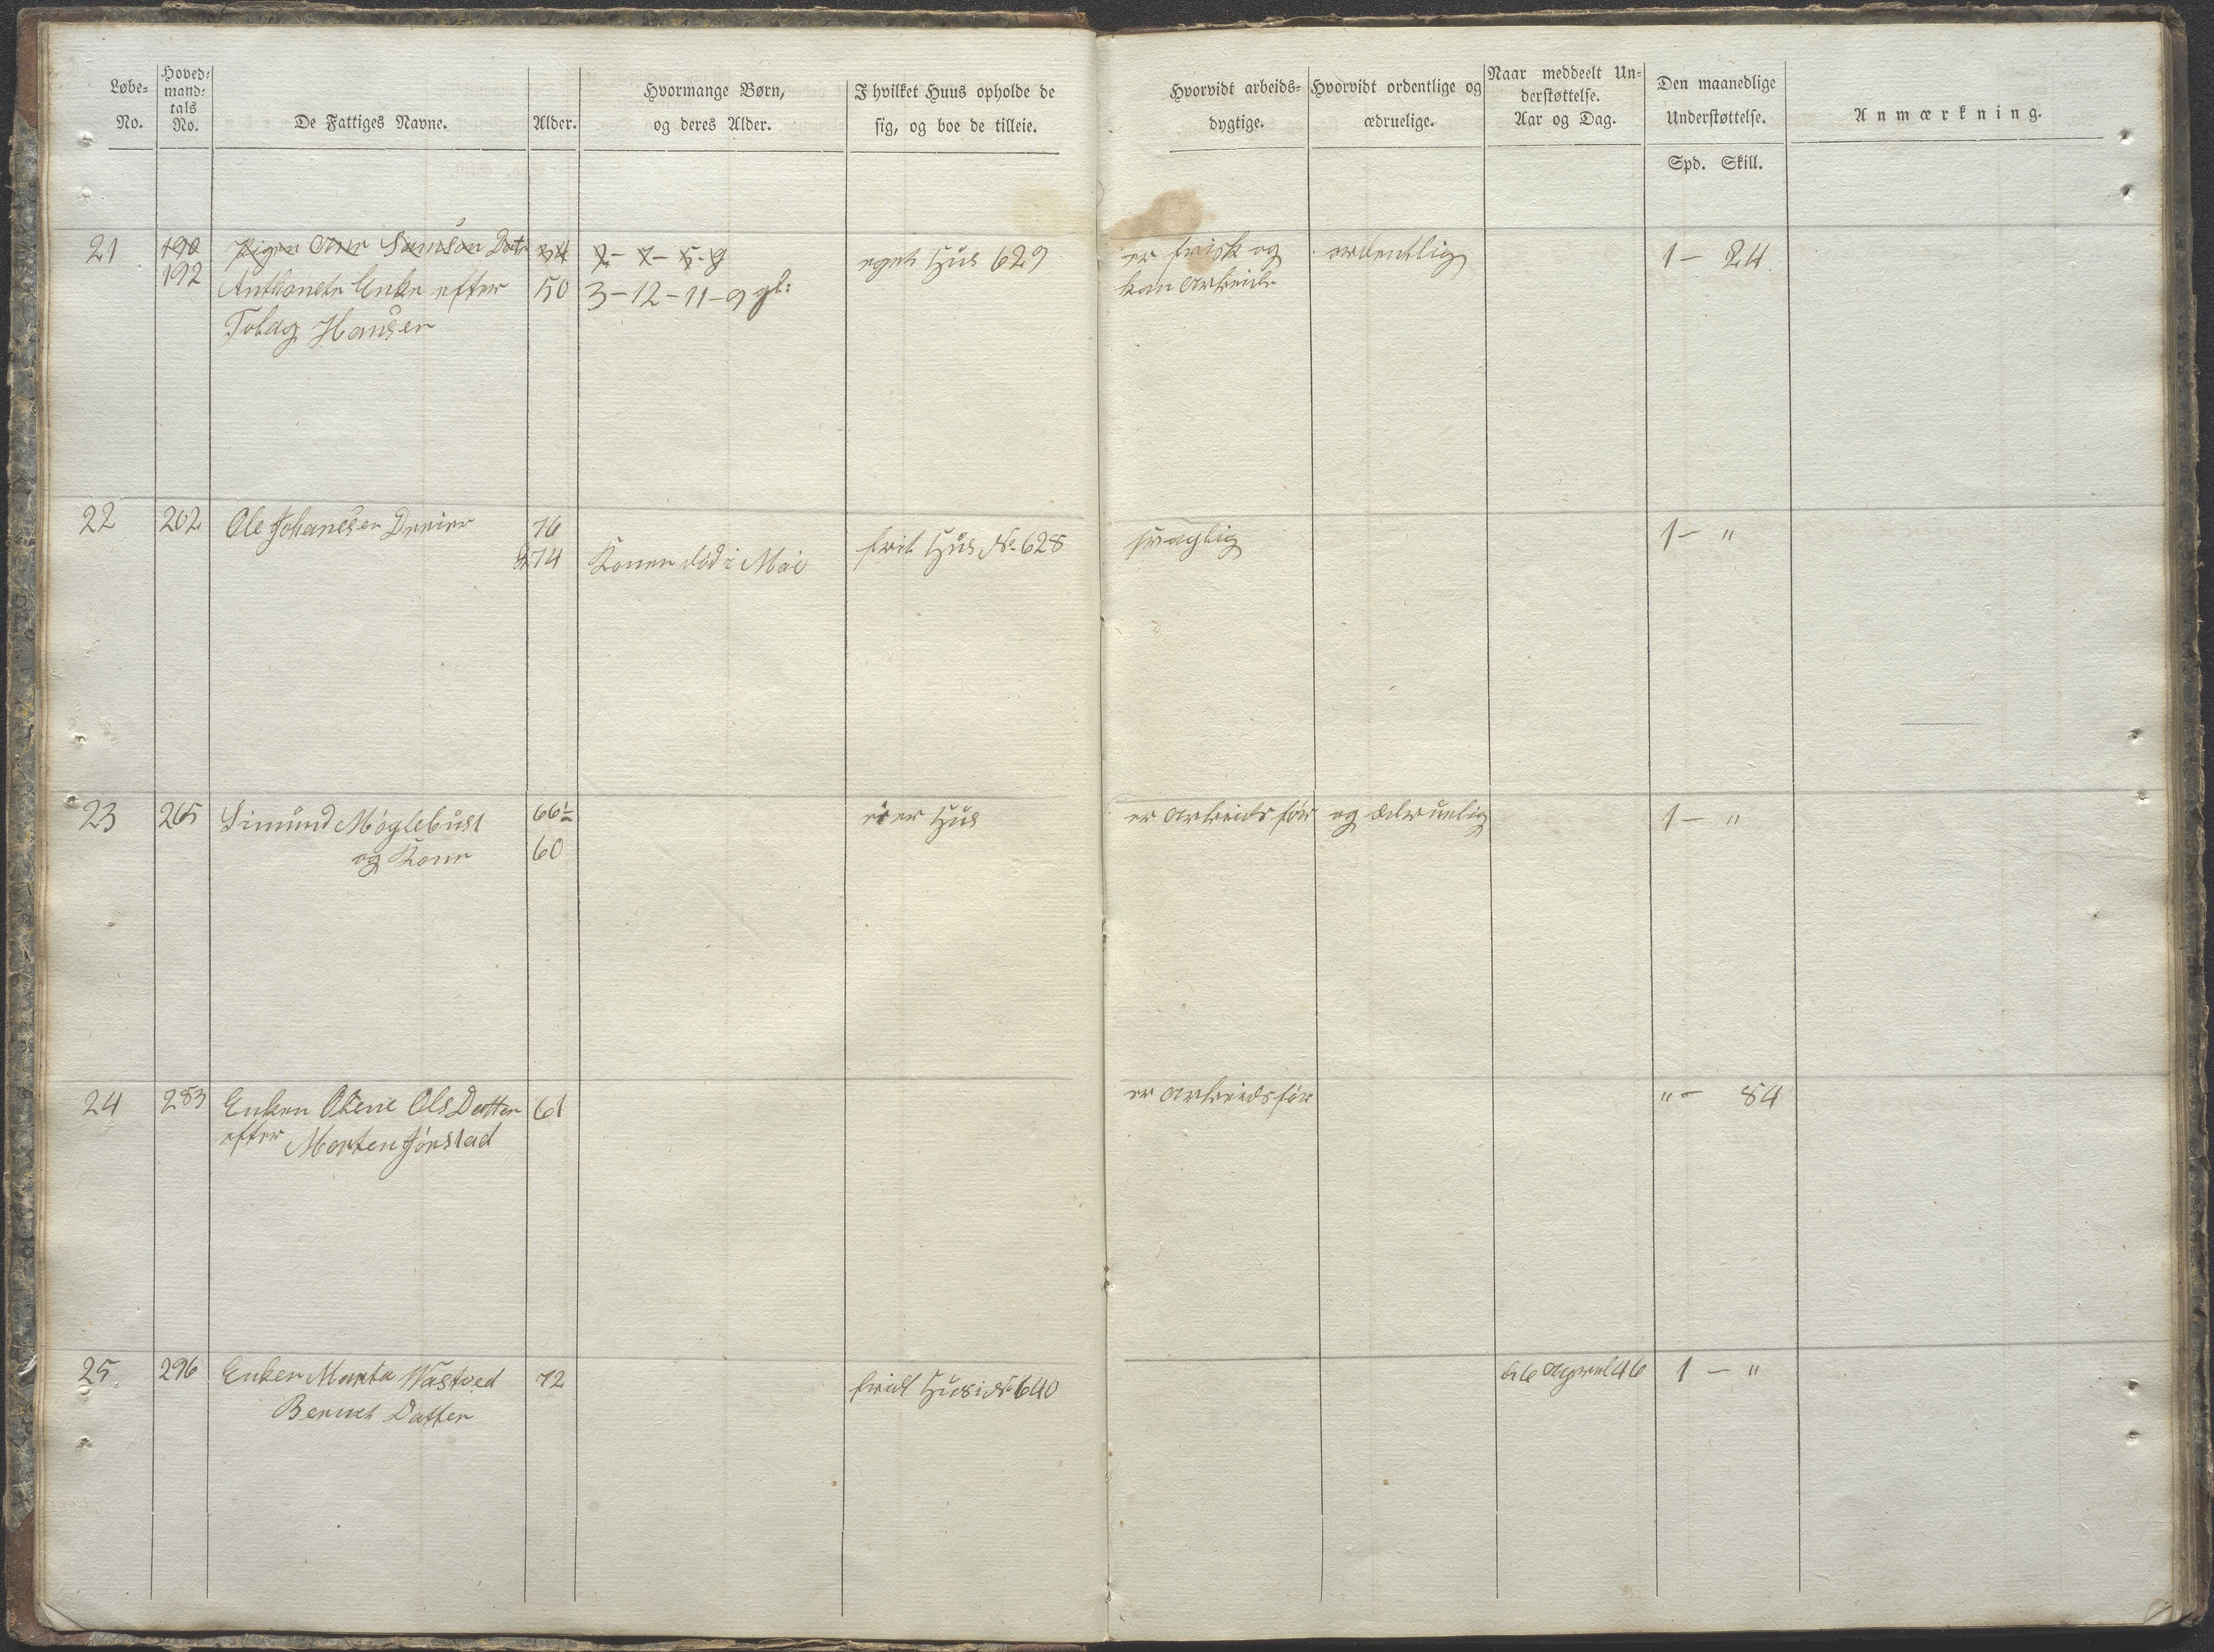 Løbe-
No.
Hoved-
mand-
tals
No.
De Fattiges Navne.
Alder.
Hvormange Børn,
og deres Alder.
I hvilket Huus opholde de
sig, og boe de tilleie.
Hvorvidt arbeids-
dygtige.
Hvorvidt ordentlige og
ædruelige.
Naar meddeelt Un-
derstøttelse.
Aar og Dag.
Den maanedlige
Understøttelse.
Spd. Skill.
Anmærkning.
21 190 Pigen Ane Samson Datr 34
eget Hus 629 er frisk og ordentlig 1 — 24
192 Anthonete Enke efter 50 3-12-11-9 gl: kan arbeide
Tobag Hansen
22 202 Ole Johanesen Dreier 76
74 Konen död i Mai frit Hus No 628 svaglig 1 — "
23 265 Simund Möglebust 66 eier Hus er arbeidsför og ædruelig 1 — "
og Kone 60
24 283 Enken Olene Ols Datter 61 er arbeidsför " — 84
efter Morten Jönstad
25 296 Enken Marta Wastved 72 fridt Hus i No 640 April 46 1 — "
Datter